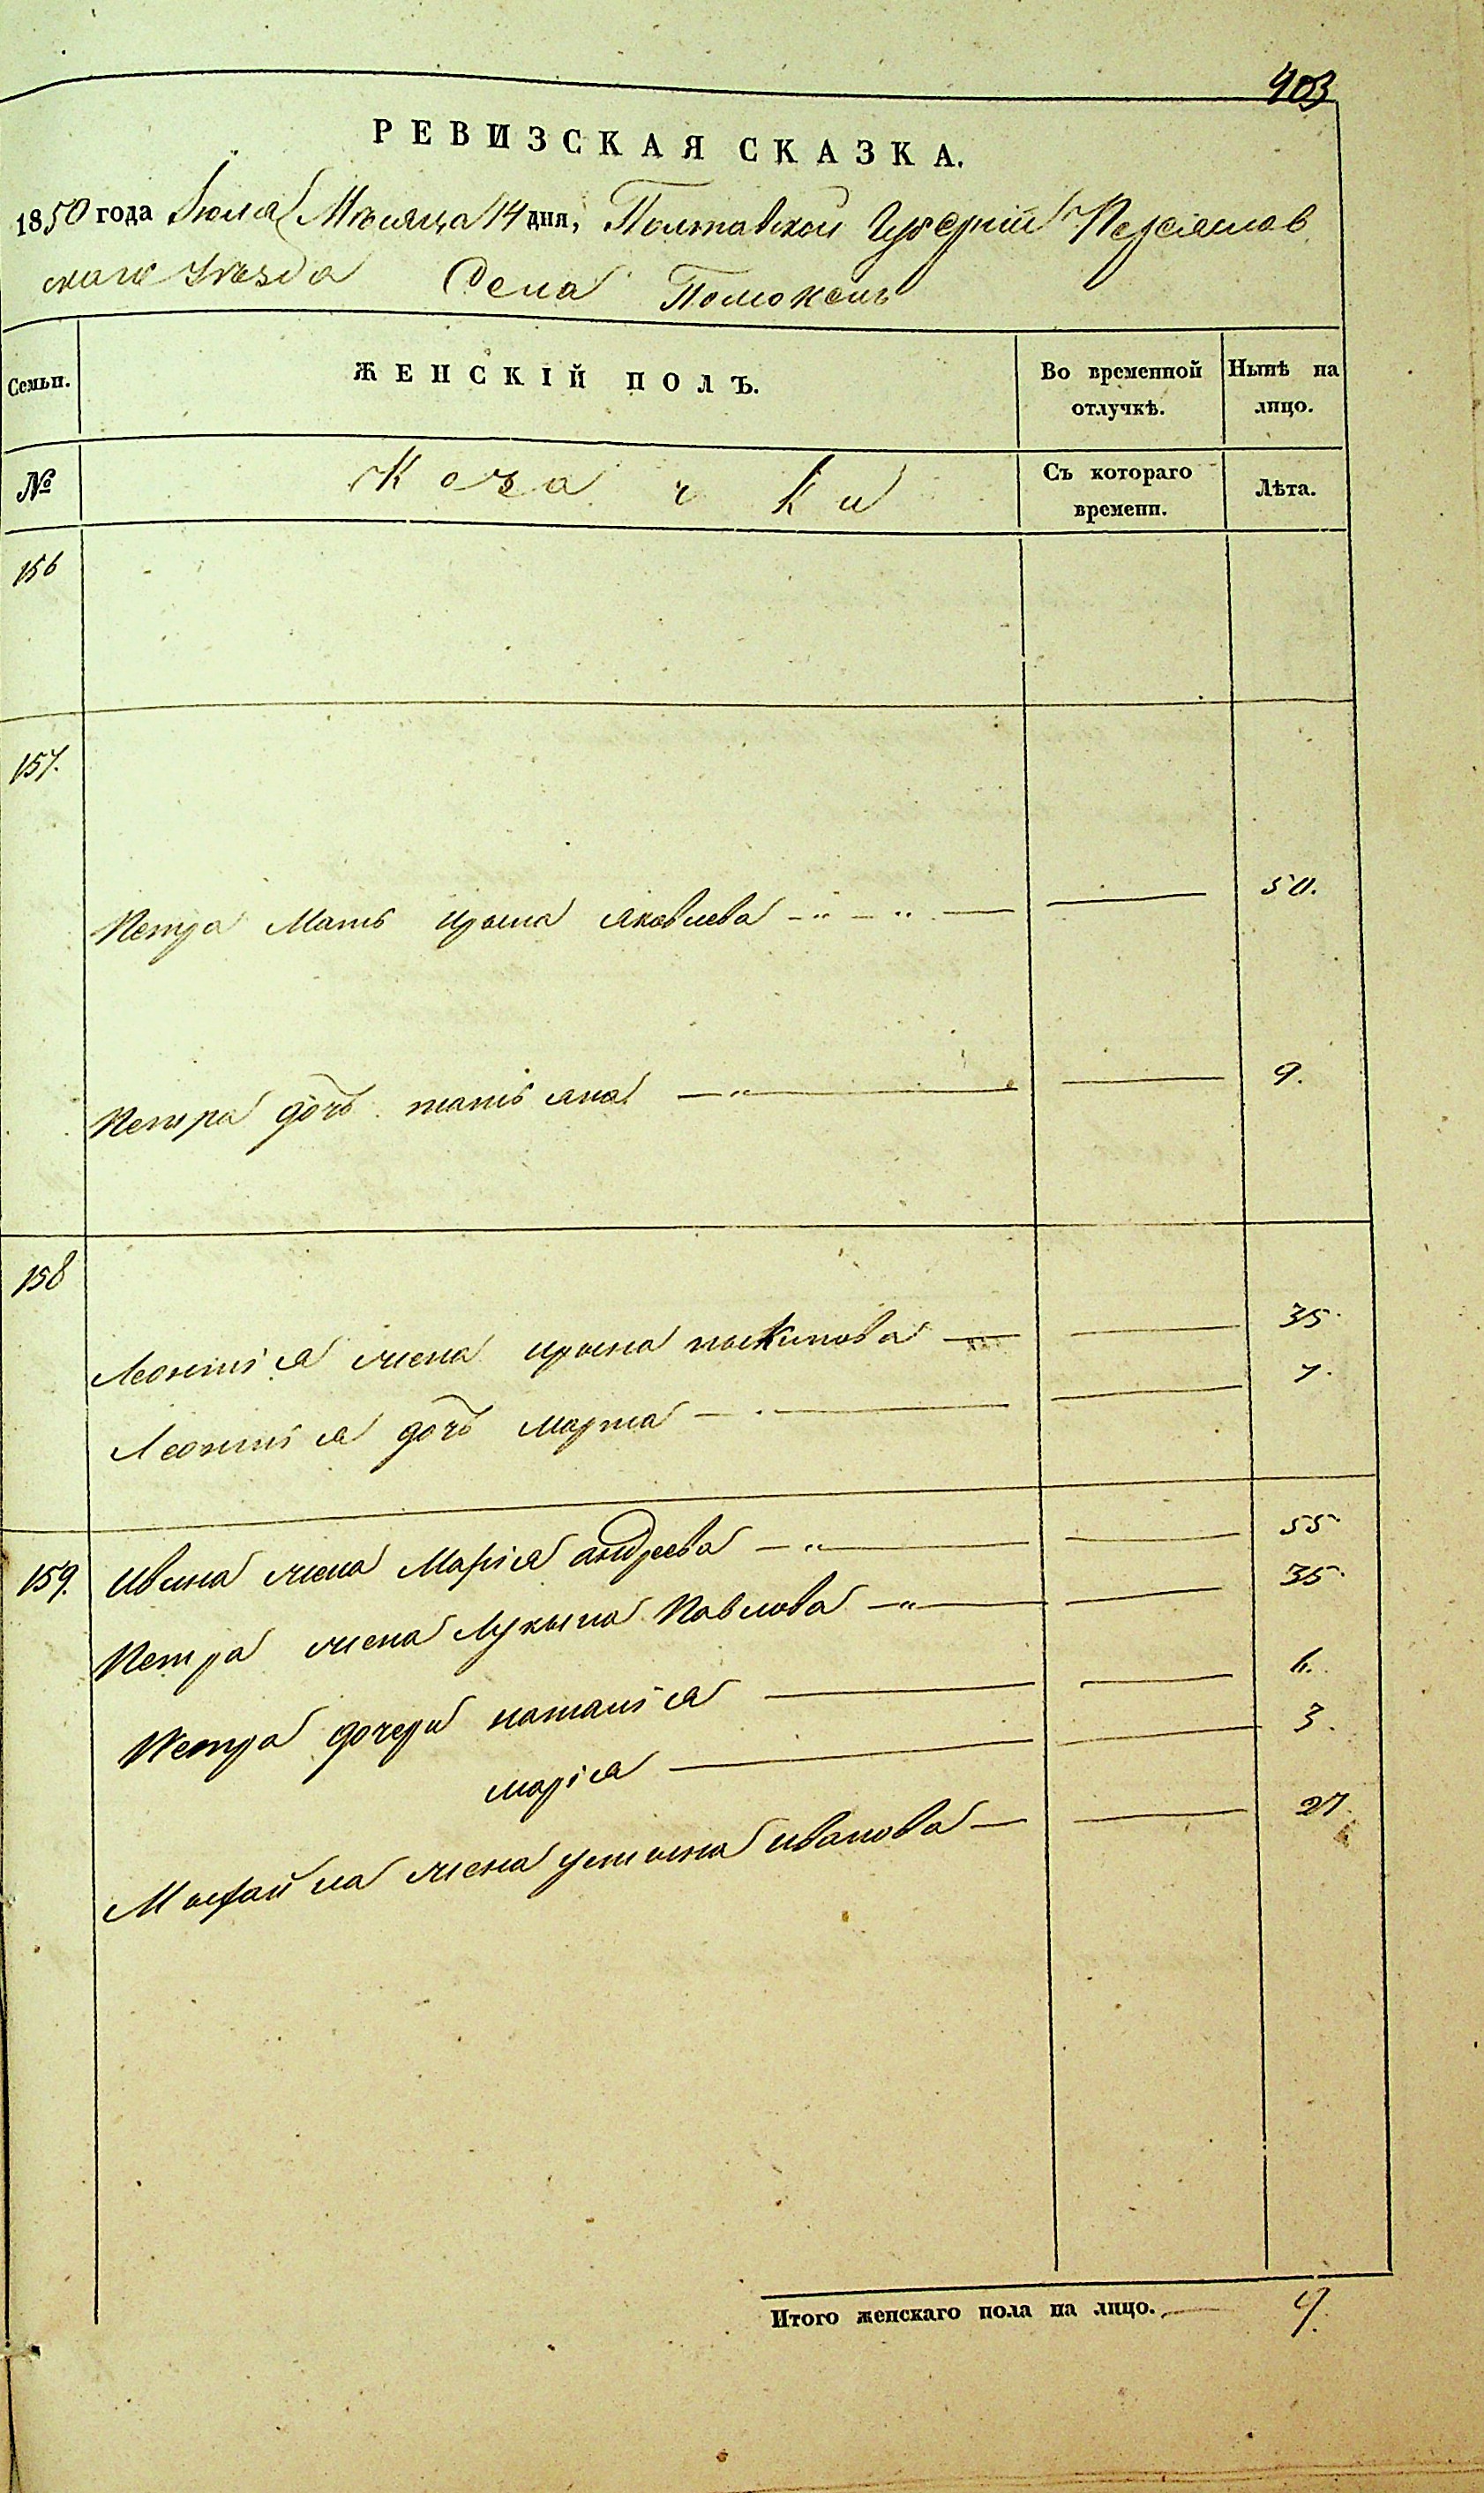 403
РЕВИЗСКАЯ СКАЗКА.
1850 года Іюля Мѣсяца 14 дня, Полтавской Губерніи Переяслав
скаго Уѣзда Села Помоклъ
Семьи. ЖЕНСКІЙ ПОЛЪ. Во временной отлучкѣ. Нынѣ на лицо.
№ Козачки Съ котораго времени. Лѣта.
156
157.
Петра Мать Ирына Яковлева 50.
Петра дочь татіяна 9.
158
Леонтія жена ирына 35.
Леонтія дочь марта 7.
159. Ивана жена Марія андреева 55.
Петра жена Лукыя Павлова 35.
Петра дочери наталія 6.
марія 3.
Михайла жена устына иванова 27.
Итого женскаго пола на лицо. 9.